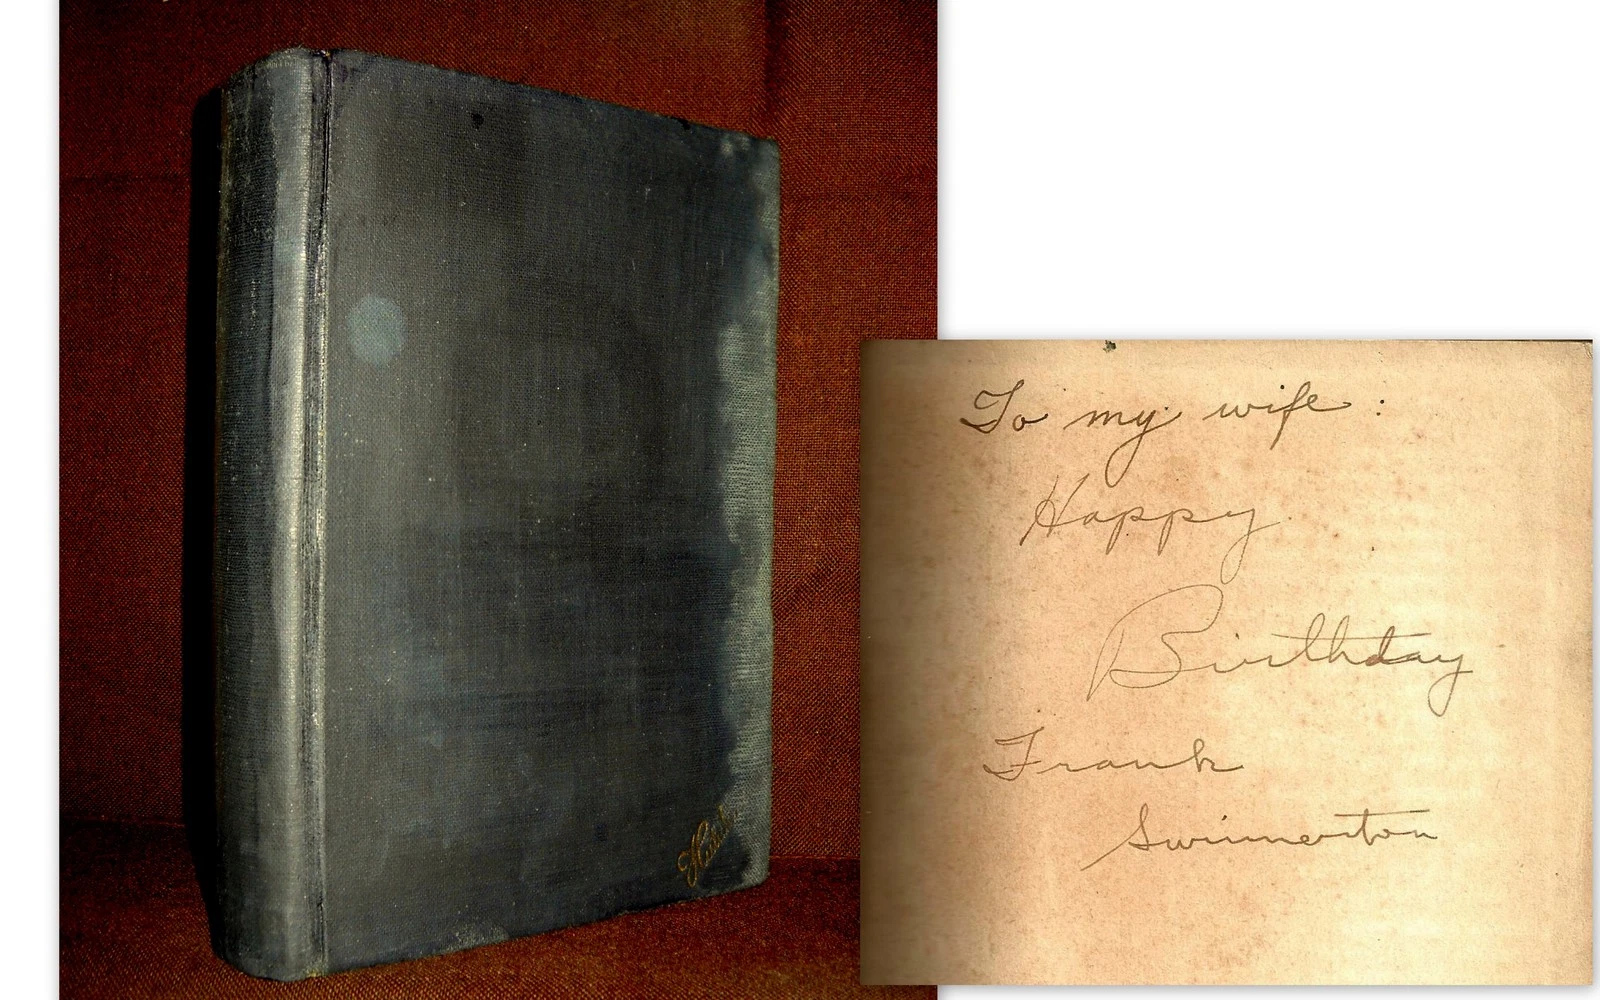 To my wife :
Happy
Birthday
Frank
Swinnerton